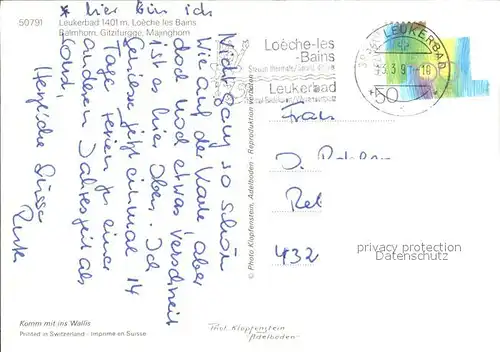 * hier bin ich
50791
Leukerbad 1401 m, Loèche les Bains
Balmhorn, Gitzifurgge, Majinghorn
Nicht ganz so schön
wie auf der Karte aber
doch noch etwas verschneit
ist es hier oben. Ich
geniesse jetzt einmal 14
Tage Ferien zu einer
anderen Jahreszeit als
sonst.
Herzliche Grüsse
© Photo Klopfenstein, Adelboden - Reproduktion verboten
Loèche-les
-Bains
Leukerbad
LEUKERBAD
50
Frau
D.
432
privacy protection
Datenschutz
Komm mit ins Wallis
Printed in Switzerland - Imprimé en Suisse
Phot. Klopfenstein
"Adelboden"